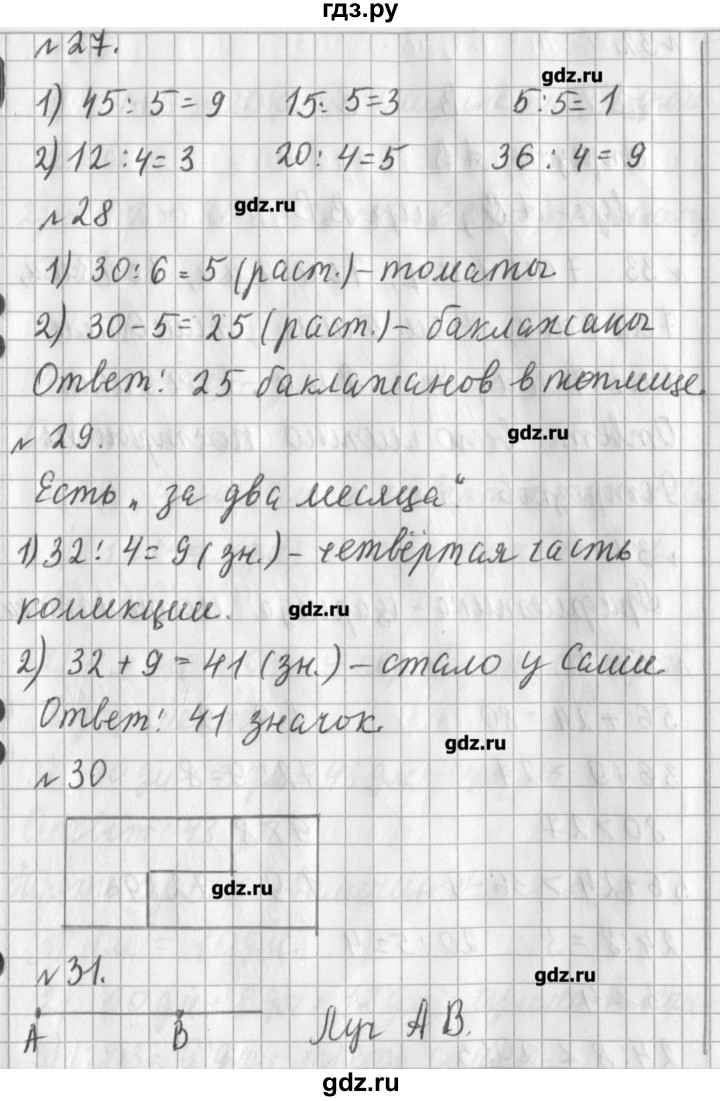 гдз.ру
№27.
gdz.ru
1) 45 : 5 = 9 15 : 5 = 3 5 : 5 = 1
2) 12 : 4 = 3 20 : 4 = 5 36 : 4 = 9
№28 gdz.ru
1) 30 : 6 = 5 (раст.) – томаты
2) 30 – 5 = 25 (раст.) – баклажаны
Ответ: 25 баклажанов в теплице.
№29. gdz.ru
Есть „за два месяца“.
1) 32 : 4 = 9 (зн.) – четвёртая часть
коллекции. gdz.ru
2) 32 + 9 = 41 (зн.) – стало у Саши
Ответ: 41 значок.
gdz.ru
№30
gdz.ru
№31. gdz.ru
А В Луч АВ.
gdz.ru